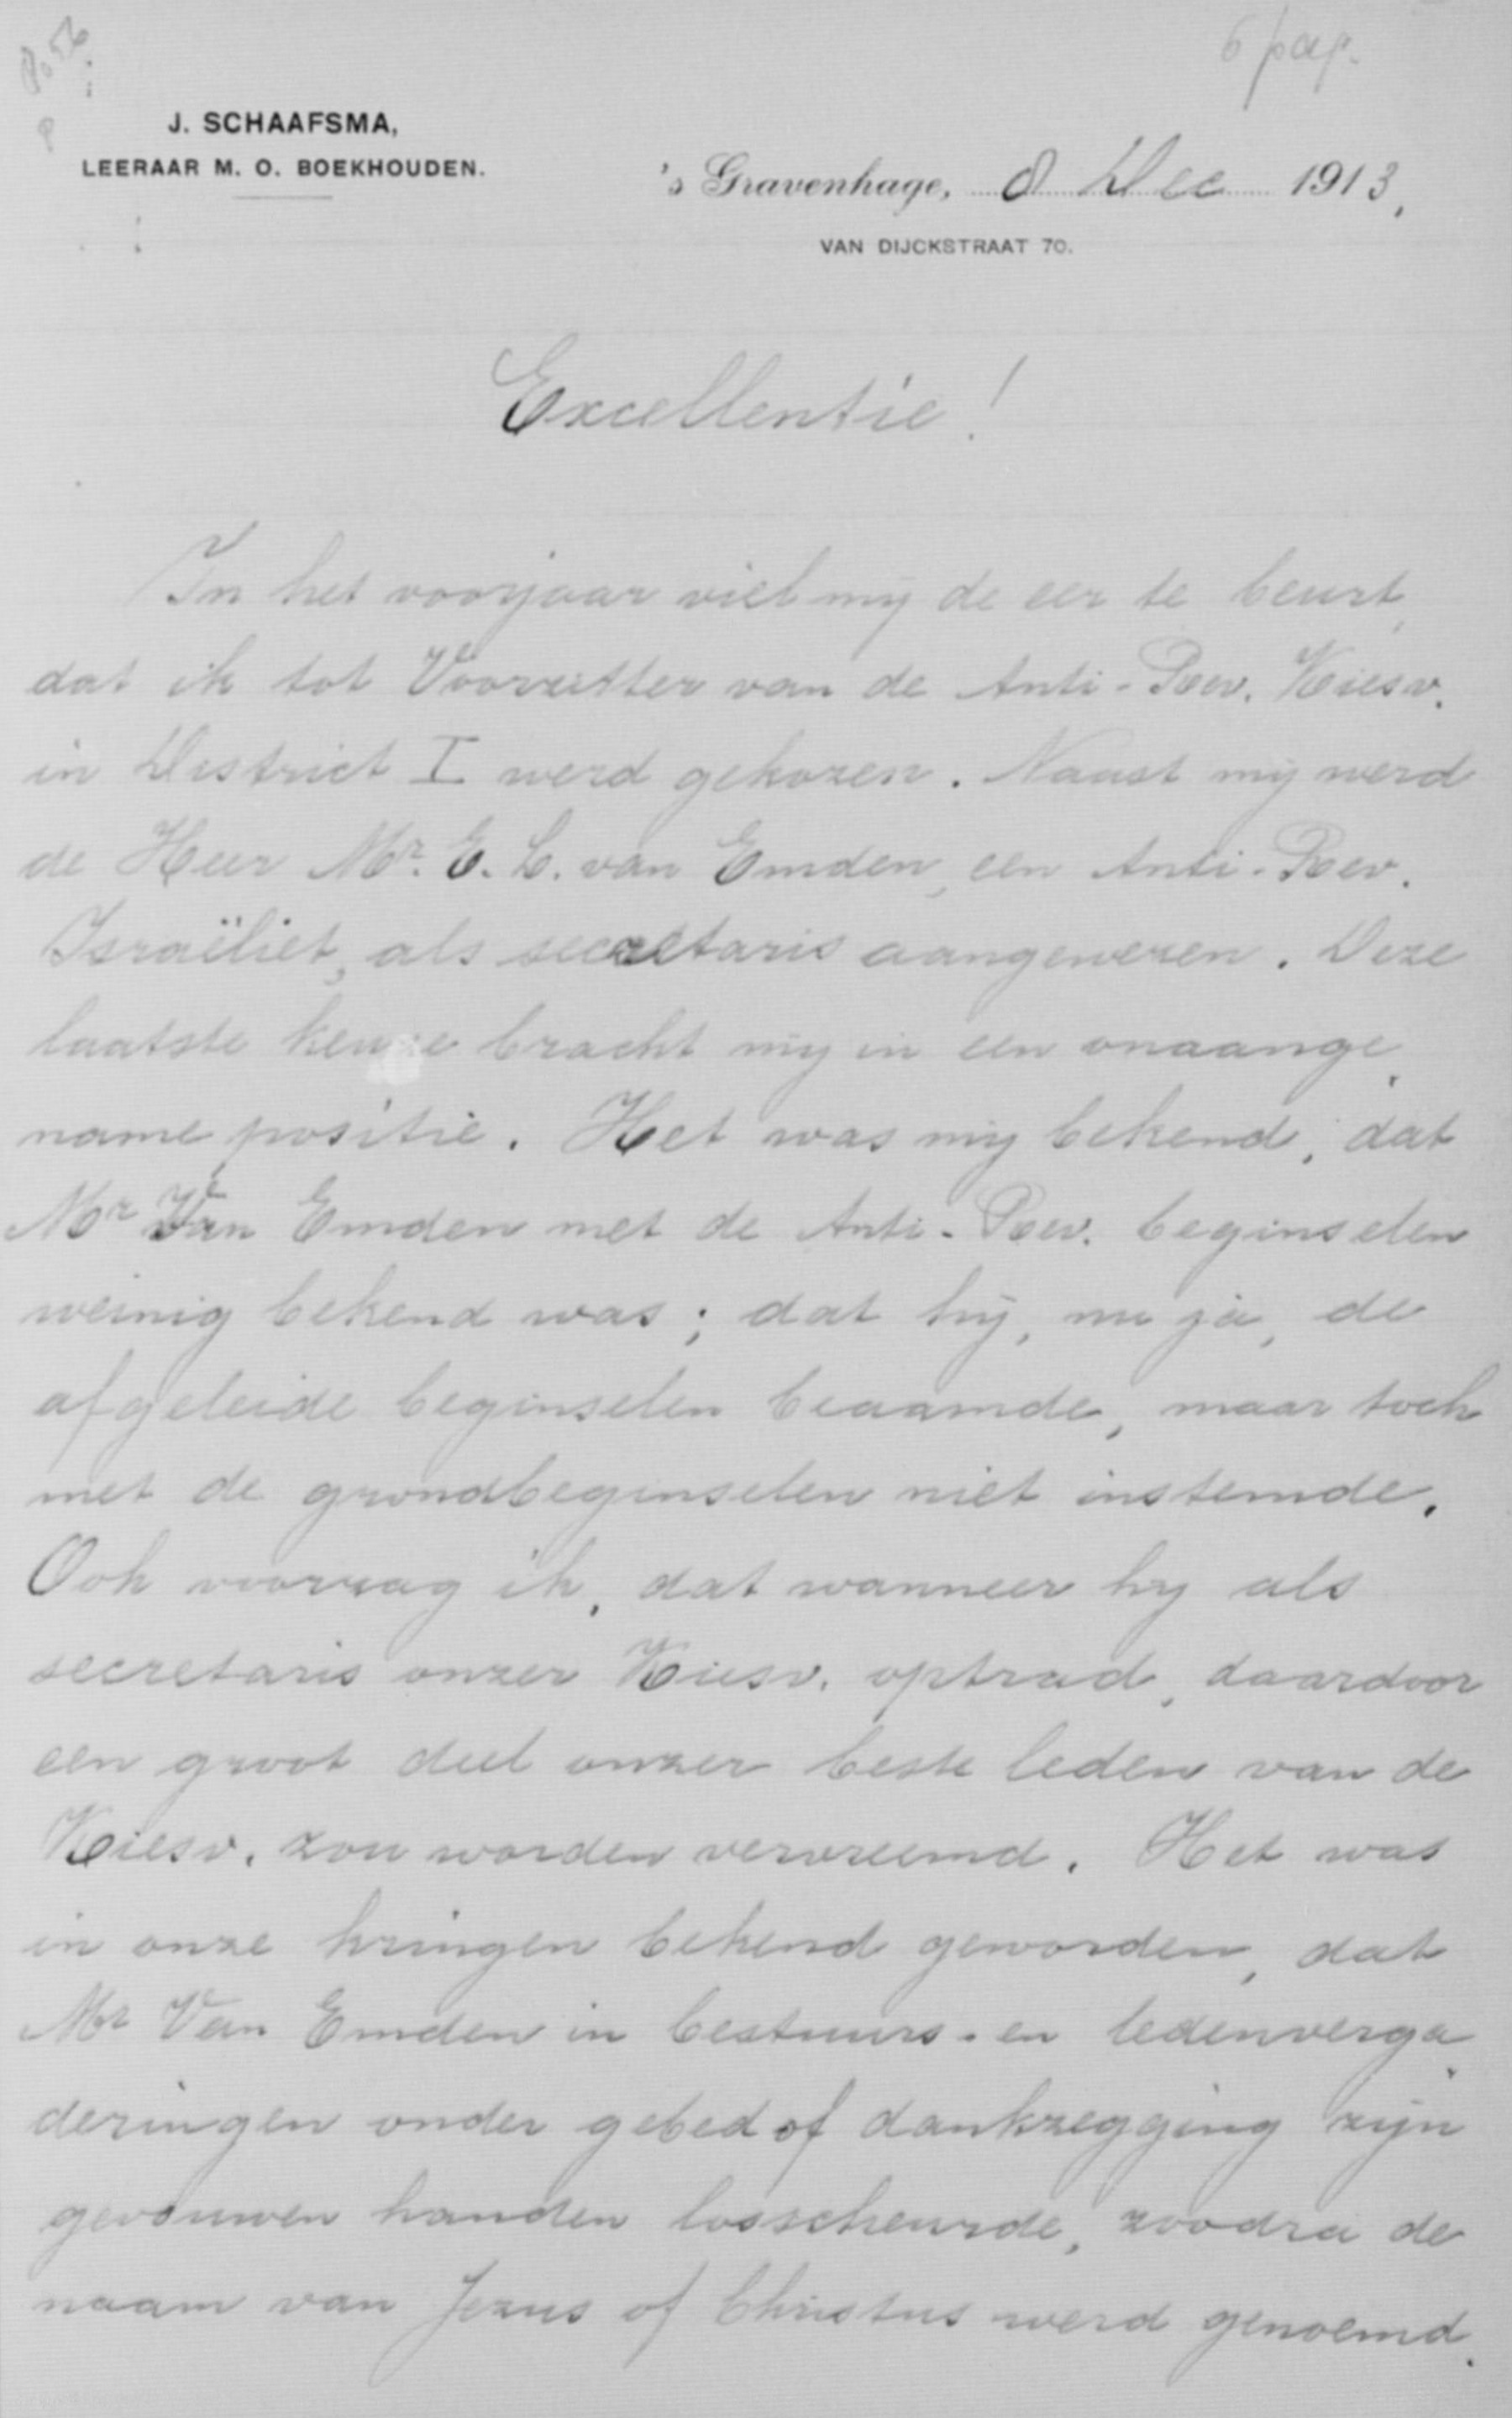 6 pag.
J. SCHAAFSMA,
LEERAAR M. O. BOEKHOUDEN.
's Gravenhage, 8 Dec 1913,
VAN DIJCKSTRAAT 70.
Excellentie!
In het voorjaar viel mij de eer te beurt,
dat ik tot Voorzitter van de Anti-Rev. Kiesv.
in District I werd gekozen. Naast mij werd
de Heer Mr. E. L. van Emden, een Anti-Rev.
Israëliet, als secretaris aangewezen. Deze
laatste keuze bracht mij in een onaange
name positie. Het was mij bekend, dat
Mr Van Emden met de Anti-Rev. beginselen
weinig bekend was; dat hij, nu ja, de
afgeleide beginselen beaamde, maar toch
met de grondbeginselen niet instemde.
Ook voorzag ik, dat wanneer hij als
secretaris onzer Kiesv. optrad, daardoor
een groot deel onzer beste leden van de
Kiesv. zou worden vervreemd. Het was
in onze kringen bekend geworden, dat
Mr Van Emden in bestuurs- en ledenverga
deringen onder gebed of dankzegging zijn
gevouwen handen losscheurde, zoodra de
naam van Jezus of Christus werd genoemd.